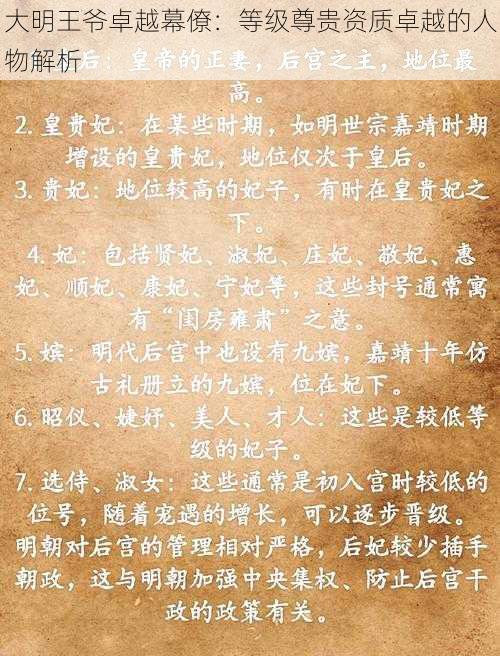 大明王爷卓越幕僚：等级尊贵资质卓越的人
物解析
后：皇帝的正妻，后宫之主，地位最
高。
2. 皇贵妃：在某些时期，如明世宗嘉靖时期
增设的皇贵妃，地位仅次于皇后。
3. 贵妃：地位较高的妃子，有时在皇贵妃之
下。
4. 妃：包括贤妃、淑妃、庄妃、敬妃、惠
妃、顺妃、康妃、宁妃等，这些封号通常寓
有“闺房雍肃”之意。
5. 嫔：明代后宫中也设有九嫔，嘉靖十年仿
古礼册立的九嫔，位在妃下。
6. 昭仪、婕妤、美人、才人：这些是较低等
级的妃子。
7. 选侍、淑女：这些通常是初入宫时较低的
位号，随着宠遇的增长，可以逐步晋级。
明朝对后宫的管理相对严格，后妃较少插手
朝政，这与明朝加强中央集权、防止后宫干
政的政策有关。